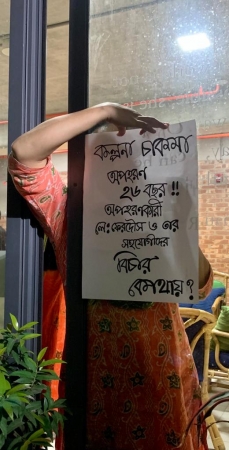 কল্পনা চাকমা
অপহরণ
২৬ বছর !!
অপহরণকারী
লে: ফেরদৌস ও তার
সহযোগীদের
বিচার
কোথায় ?